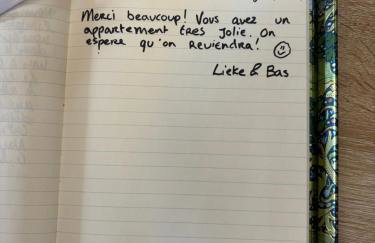 Merci beaucoup! Vous avez un
appartement très Jolie. On
espere qu'on Reviendra! ☺
Lieke & Bas